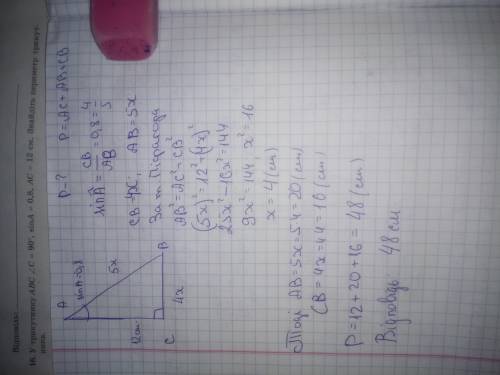 Відповідь:
16. У трикутнику ABC ∠C = 90°, sinA = 0,8, AC = 12 см. Знайдіть периметр трикут-
ника.
A
sinA=0,8
5x
B
12см
C
4x
P-? P=AC+AB+CB
sinA = CB/AB = 0,8 = 4/5
CB=4x; AB=5x
За т. Піфагора
AB²=AC²+CB²
(5x)²=12²+(4x)²
25x²-16x²=144
9x²=144, x²=16
x=4(см)
Тоді AB=5x=5·4=20(см)
CB=4x=4·4=16(см)
P=12+20+16=48(см)
Відповідь 48 см